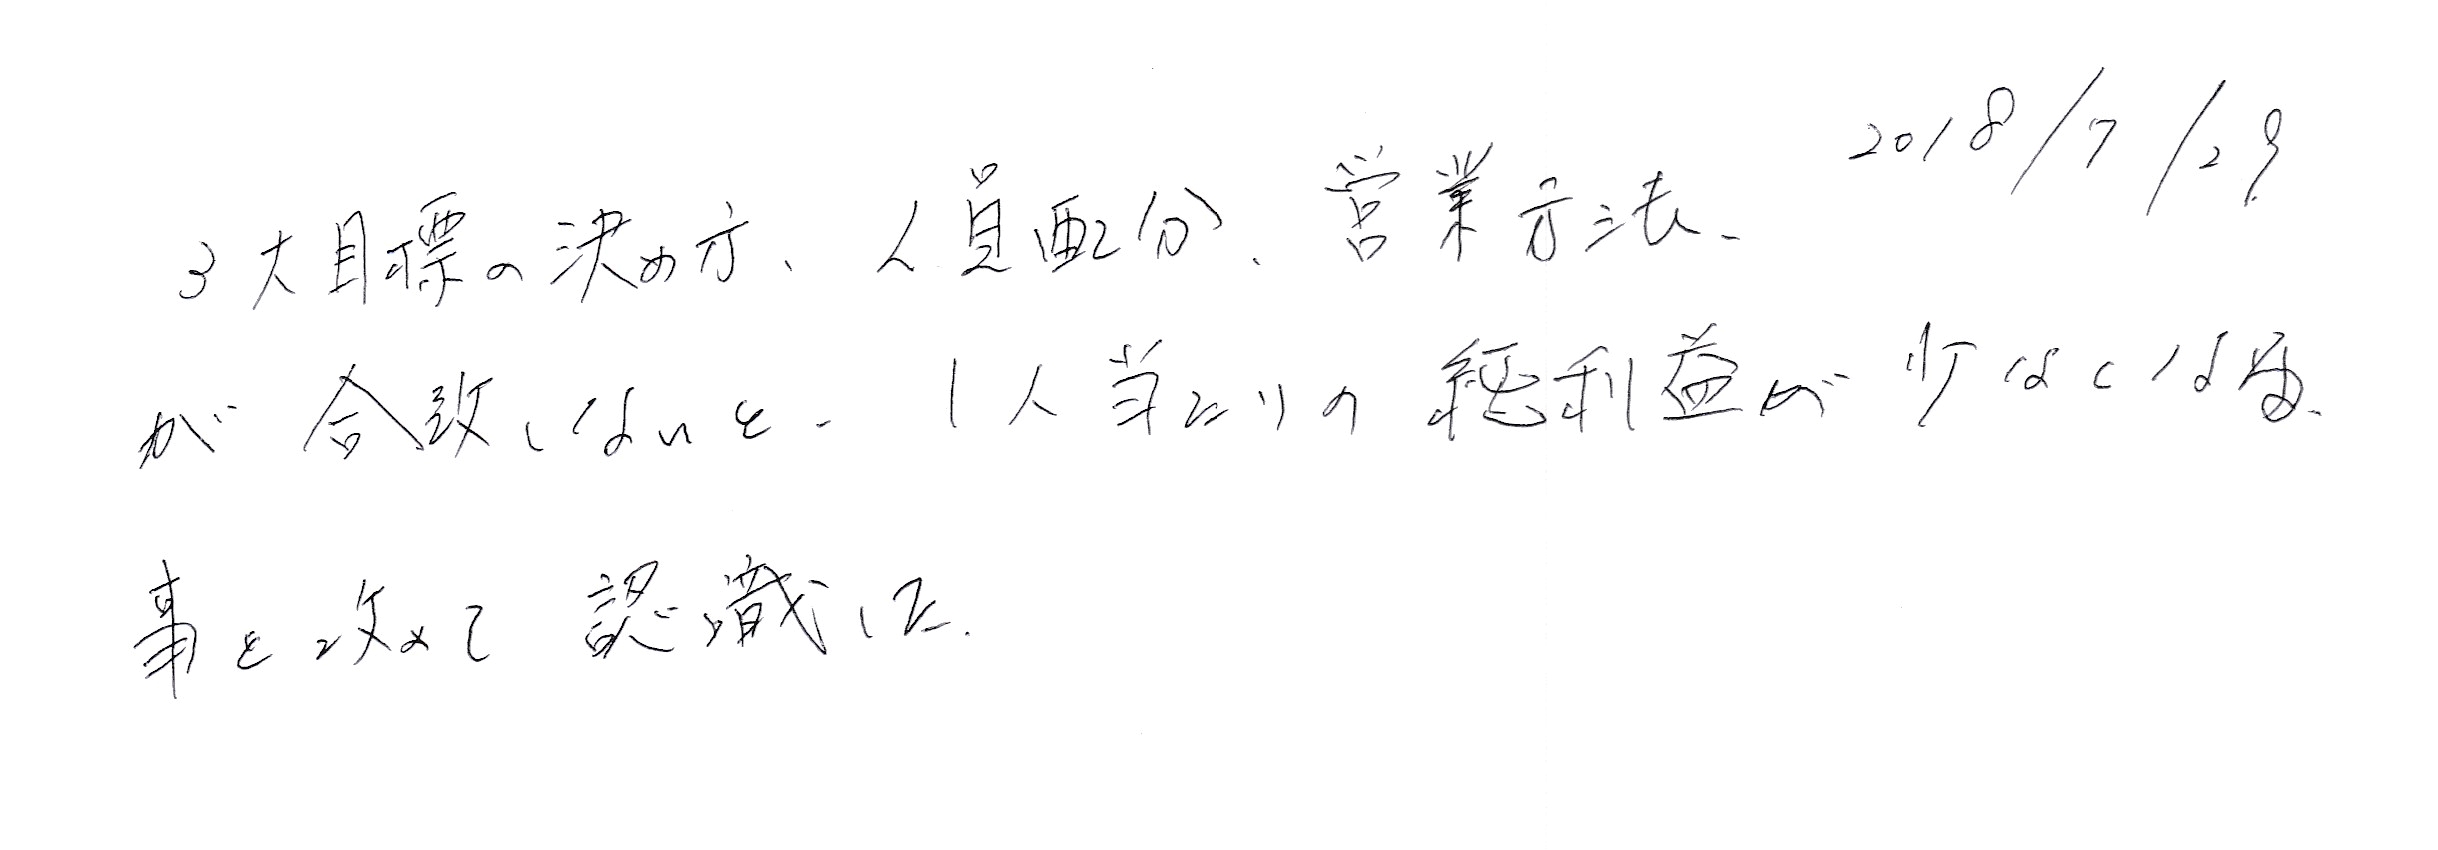 2018/7/29
3大目標の決め方、人員配分、営業方法、
が合致しないと、1人当たりの純利益が少なくなる
事を改めて認識した。